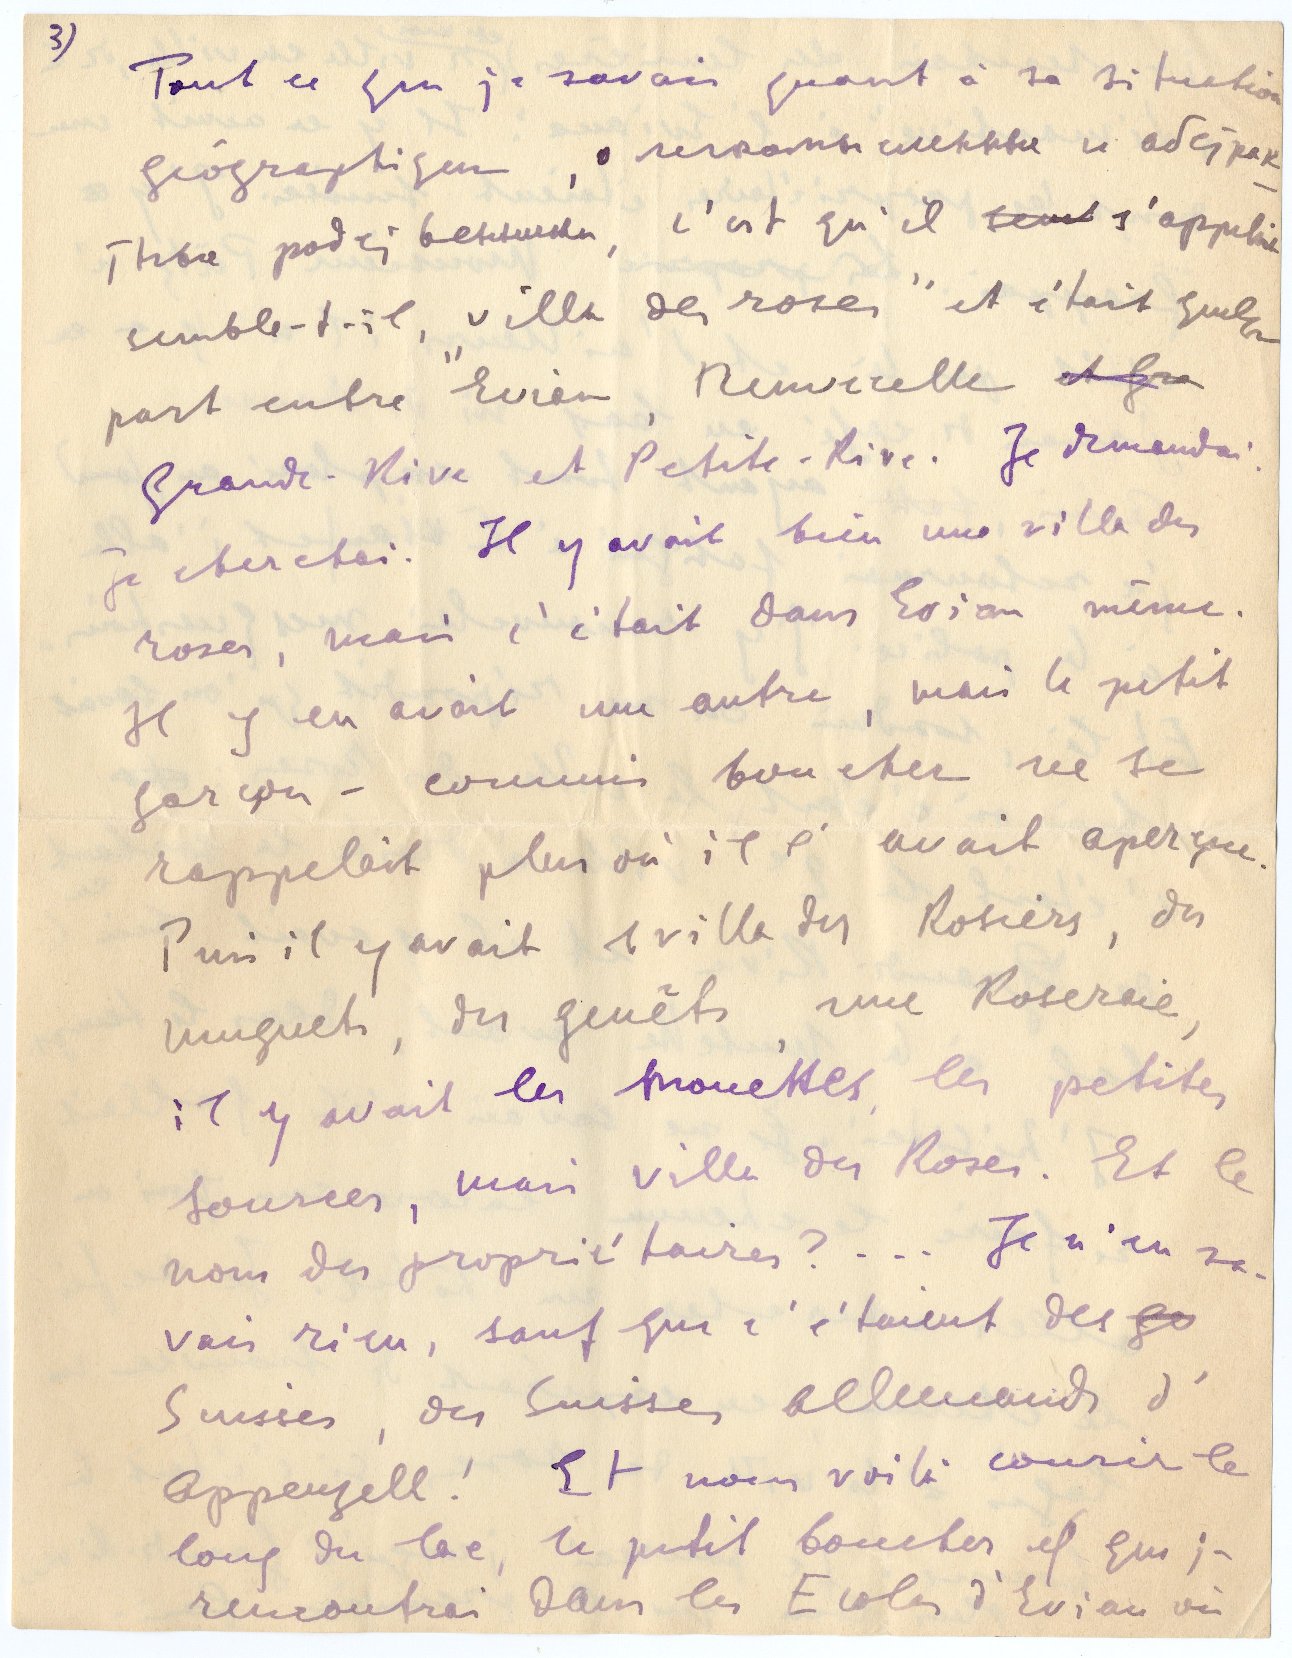 3)
Tout ce que je savais quant à sa situation
géographique, легкомысленные и абстрак-
тные родственники, c'est qu'il semb s'appelait
semble-t-il, „villa des roses" et était quelque
part entre "Evian, Neuvecelle et Gra
Grande-Rive et Petite-Rive. Je demandai.
Je cherchai. Il y avait bien une villa des
roses, mais c'était dans Evian même.
Il y en avait une autre, mais le petit
garçon – commis boucher ne se
rappelait plus où il l'avait aperçue.
Puis il y avait villa des Rosiers, des
muguets, des genêts, une Roseraie,
il y avait les mouettes, les petites
sources, mais villa des Roses. Et le
nom des propriétaires? ... Je n'en sa-
vais rien, sauf que c'étaient des go
Suisses, des Suisses allemands d'
Appenzell! Et nous voilà courir le
long du lac, le petit boucher que je
rencontrai dans les Ecoles d'Evian où